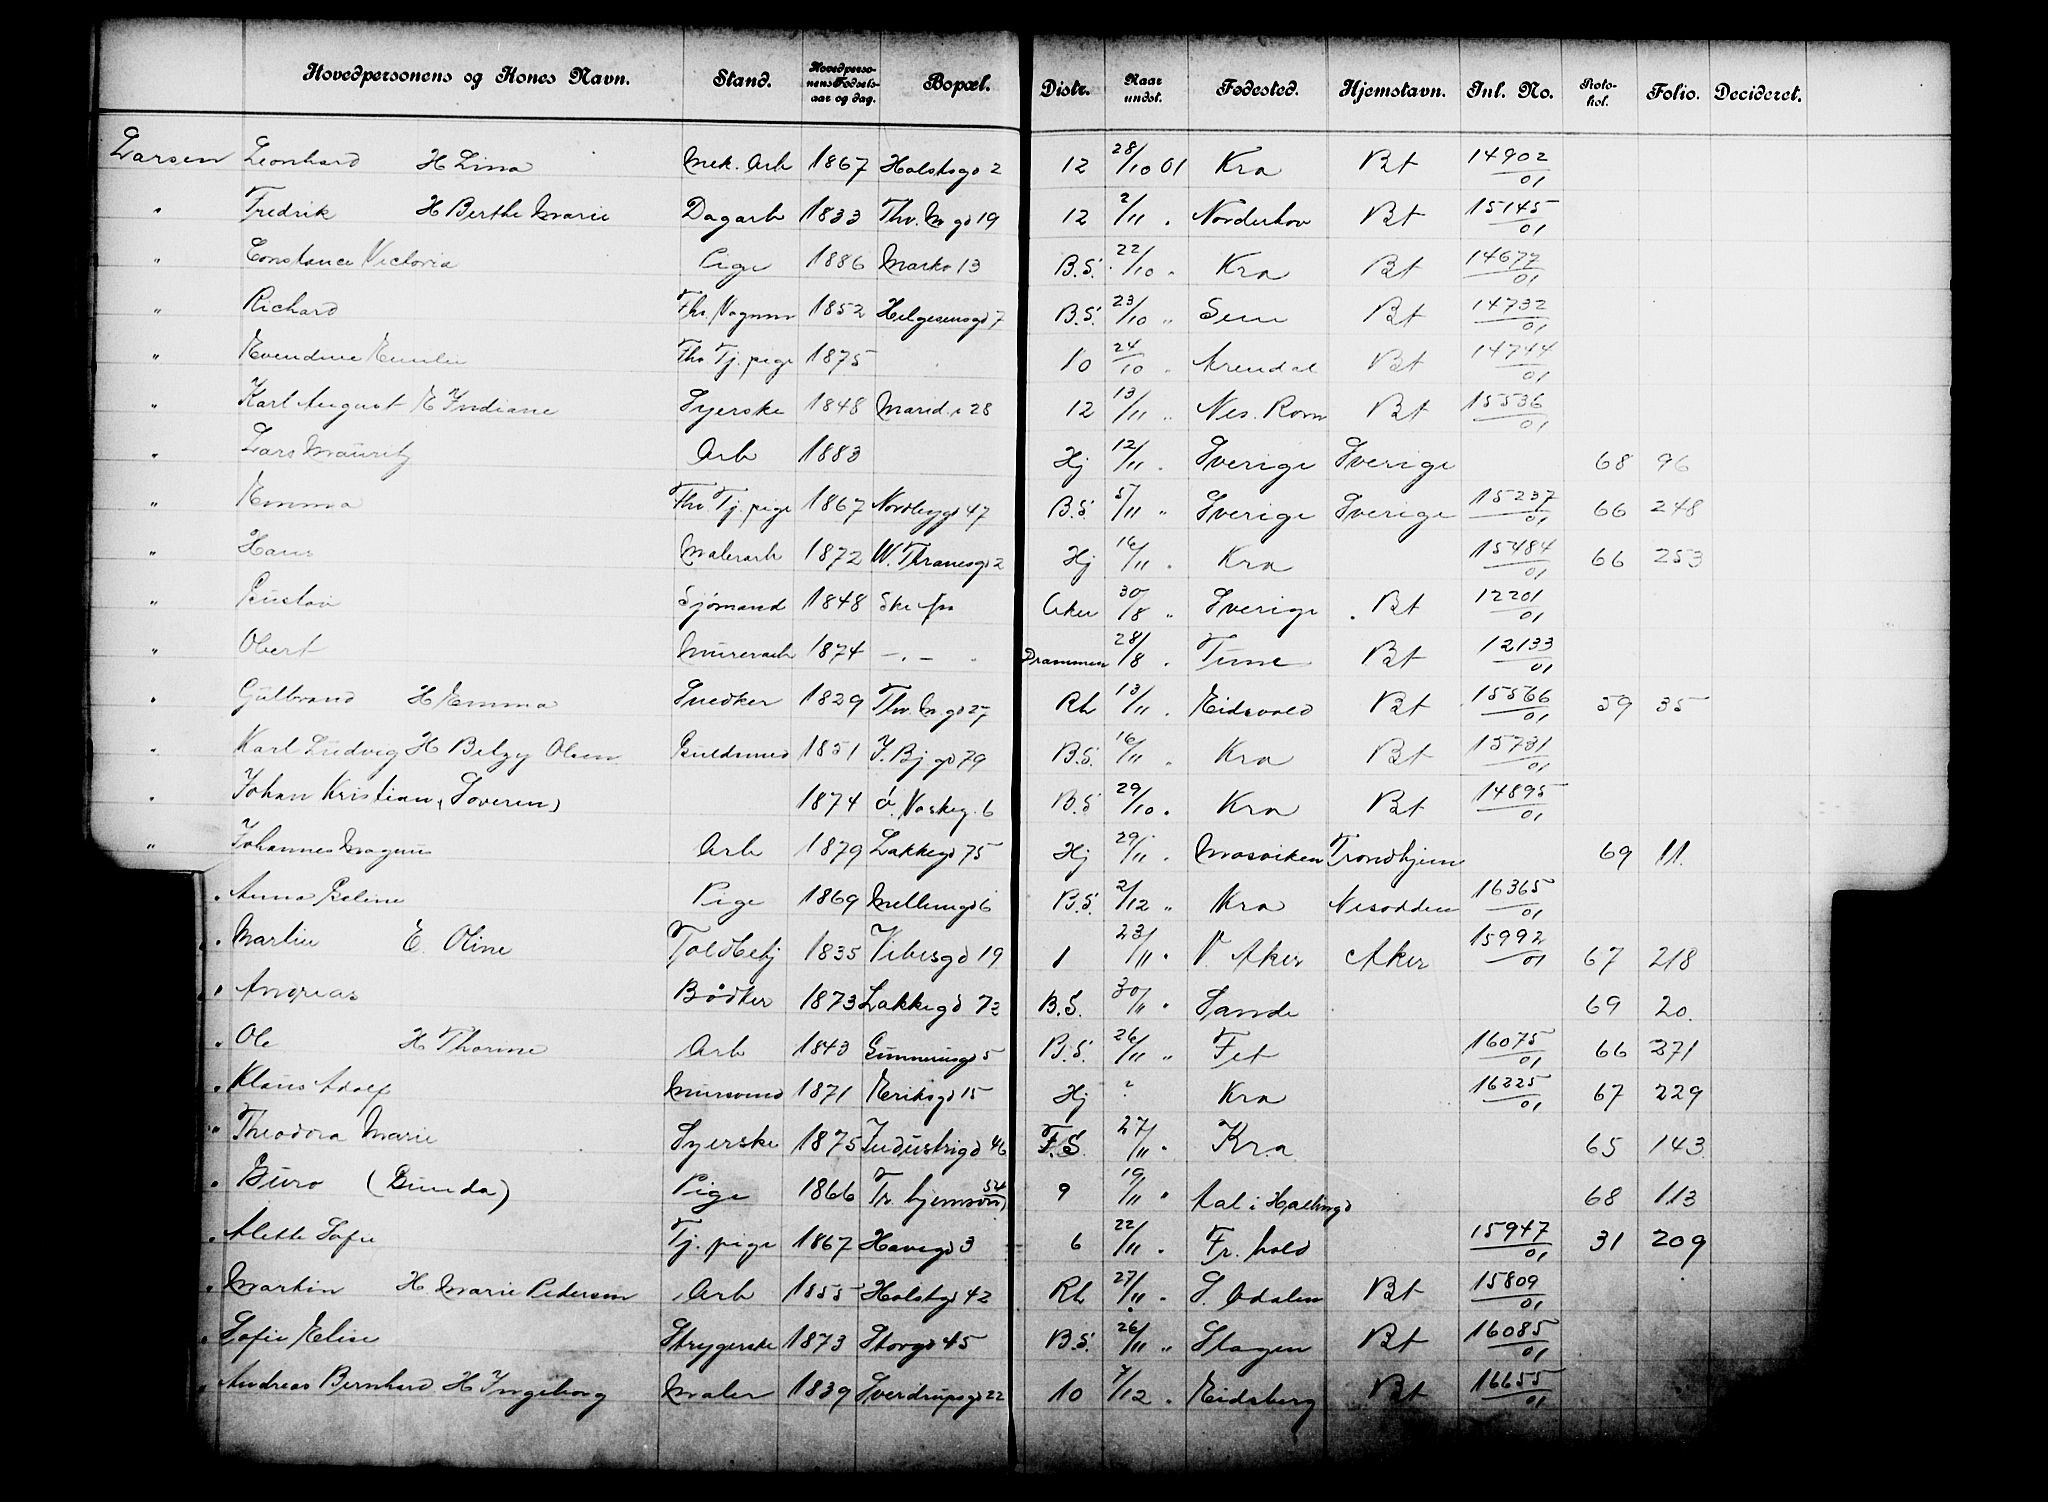 Hovedpersonens og Kones Navn. Stand. Hovedperso-nens Fødsels-aar og dag. Bopæl. Distr. Naar undst. Fødested. Hjemstavn. Inl. No. Proto-kol. Folio. Decideret.
Larsen Leonhard H Lina Mek. Arb 1867 Holstsgd 2 12 28/10 01 Kra Bt 14902/01
" Fredrik H Berthe Marie Dagarb 1833 Thv. M gd 19 12 2/11 " Norderhov Bt 15145/01
" Constance Victoria Pige 1886 Markv 13 B.S. 22/10 " Kra Bt 14677/01
" Richard Fhv. Vognm 1852 Helgesensgd 7 B.S. 23/10 " Sem Bt 14732/01
" Evendine Emilie Fhv Tj. pige 1875 10 24/10 " Arendal Bt 14744/01
" Karl August E Indiane Syerske 1848 Marid. v 28 12 13/11 " Nes. Rom Bt 15536/01
" Lars Mauritz Arb 1883 Hj 12/11 " Sverige Sverige 68 96
" Emma Fhv Tj. pige 1867 Nordbygd 47 B.S. 5/11 " Sverige Sverige 15237/01 66 248
" Hans Malerarb 1872 M. Thranesgd 2 Hj 16/11 " Kra 15484/01 66 253
" Gustav Sjømand 1848 Ske fra Aker 30/8 " Sverige Bt 12201/01
" Olvert Murerarb 1874 -"- Drammen 28/8 " Tune Bt 12133/01
" Gulbrand H Emma Snedker 1829 Thv. M. gd 27 Rh 13/11 " Eidsvold Bt 15566/01 59 35
" Karl Ludvig H Betzy Olsen Guldsmed 1851 J. Bj gd 79 B.S. 16/11 " Kra Bt 15731/01
" Johan Kristian (Soveren) 1874 ø. Vaskeg. 6 B.S 29/10 " Kra Bt 14895/01
" Johannes Magnus Arb 1879 Lakkegd 75 Hj 29/11 " Mosviken Trondhjem 69 11.
" Anna Galine Pige 1869 Mellemgd 6 B.S. 2/12 " Kra Nesodden 16365/01
" Martin E. Oline Toldbetj 1835 Vibesgd 19 1 23/11 " V. Aker Aker 15992/01 67 218
" Andreas Bødker 1873 Lakkegd 73 B.S. 30/11 " Sande 69 20.
" Ole H Thorine Arb 1843 Gunnerusgd 5 B.S. 26/11 " Fet 16075/01 66 271
" Klaus Adolf Mursvend 1871 Eriksgd 15 Hj ? Kra 16225/01 67 229
" Theodora Marie Syerske 1875 Industrigd 46 F.S. 27/11 " Kra 65 143
" Guro (Gunda) Pige 1866 Tr. hjemsvn 54 9 19/11 " Aal i Hallingd 68 113
" Alette Sofie Tj. pige 1867 Havegd 3 6 22/11 " Fr. hald 15947/01 31 209
" Martin H. Marie Pedersen Arb 1855 Holstgd 42 Rh 27/11 " S. Odalen Bt 15809/01
" Sofie Elise Strygerske 1873 Storgd 45 B.S. 26/11 " Slagen Bt 16085/01
" Andreas Bernhard H Ingeborg Maler 1839 Sverdrupsgd 22 10 7/12 " Eidsberg Bt 16655/01